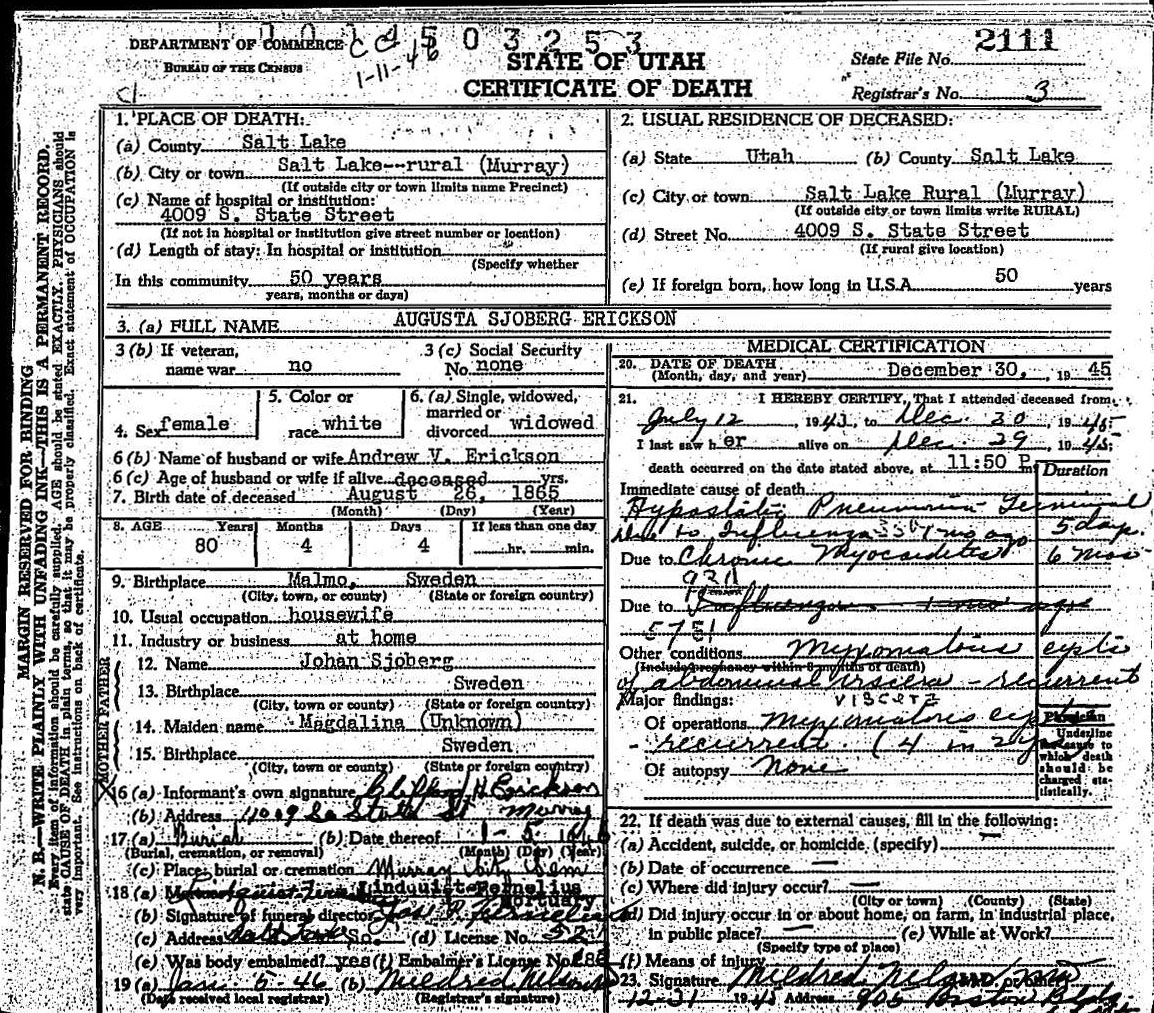 DEPARTMENT OF COMMERCE
BUREAU OF THE CENSUS
1-11-46
503253
STATE OF UTAH
CERTIFICATE OF DEATH
2111
State File No.
Registrar's No. 3
MARGIN RESERVED FOR BINDING
N. B.—WRITE PLAINLY WITH UNFADING INK—THIS IS A PERMANENT RECORD.
Every item of information should be carefully supplied. AGE should be stated EXACTLY. PHYSICIANS should
state CAUSE OF DEATH in plain terms, so that it may be properly classified. Exact statement of OCCUPATION is
very important. See instructions on back of certificate.
1. PLACE OF DEATH:
(a) County Salt Lake
(b) City or town Salt Lake--rural (Murray)
(If outside city or town limits name Precinct)
(c) Name of hospital or institution:
4009 S. State Street
(If not in hospital or institution give street number or location)
(d) Length of stay: In hospital or institution
(Specify whether
In this community 50 years
years, months or days)
2. USUAL RESIDENCE OF DECEASED:
(a) State Utah (b) County Salt Lake
(c) City or town Salt Lake Rural (Murray)
(If outside city or town limits write RURAL)
(d) Street No. 4009 S. State Street
(If rural give location)
(e) If foreign born, how long in U.S.A. 50 years
3. (a) FULL NAME AUGUSTA SJOBERG ERICKSON
3 (b) If veteran, name war no
3 (c) Social Security No. none
4. Sex female
5. Color or race white
6. (a) Single, widowed, married or divorced widowed
6 (b) Name of husband or wife Andrew V. Erickson
6 (c) Age of husband or wife if alive deceased yrs.
7. Birth date of deceased August 26, 1865
(Month) (Day) (Year)
8. AGE Years Months Days If less than one day
80 4 4 hr. min.
9. Birthplace Malmo, Sweden
(City, town, or county) (State or foreign country)
10. Usual occupation housewife
11. Industry or business at home
FATHER
12. Name Johan Sjoberg
13. Birthplace Sweden
(City, town or county) (State or foreign country)
MOTHER
14. Maiden name Magdalina (Unknown)
15. Birthplace Sweden
(City, town or county) (State or foreign country)
16 (a) Informant's own signature Clifford H Erickson
(b) Address 4009 So State St Murray
17 (a) Burial (b) Date thereof 1-5-1946
(Burial, cremation, or removal) (Month) (Day) (Year)
(c) Place; burial or cremation Murray City Cem
18 (a) Lindquist-Fernelius
Mortuary
(b) Signature of funeral director
(c) Address Salt Lake (d) License No. 521
(e) Was body embalmed? yes (f) Embalmer's License No.
19 (a) Jan. 5-46 (b) Mildred Nelson
(Date received local registrar) (Registrar's signature)
MEDICAL CERTIFICATION
20. DATE OF DEATH
(Month, day, and year) December 30, 1945
21. I HEREBY CERTIFY, That I attended deceased from
July 12, 1943, to Dec. 30 1945
I last saw her alive on Dec. 29 1945;
death occurred on the date stated above, at 11:50 P.
Duration
Immediate cause of death
Hypostatic Pneumonia - Terminal
due to Influenza 1 mo ago 5 days.
Due to Chronic Myocarditis 6 mos
Due to Influenza 1 mo ago
Other conditions Myxomatous cysts
(Include pregnancy within 3 months of death)
of abdominal viscera - recurrent
Major findings: VISCERA
Of operations Myxomatous cysts
- recurrent. (4 in 2 yrs)
Of autopsy None
Physician
Underline
the cause to
which death
should be
charged sta-
tistically.
22. If death was due to external causes, fill in the following:
(a) Accident, suicide, or homicide, (specify) —
(b) Date of occurrence —
(c) Where did injury occur? —
(City or town) (County) (State)
(d) Did injury occur in or about home, on farm, in industrial place,
in public place? — (e) While at Work?
(Specify type of place)
(f) Means of injury
23. Signature Mildred Nelson
12-31 1945 Address 906 Boston Bldg.